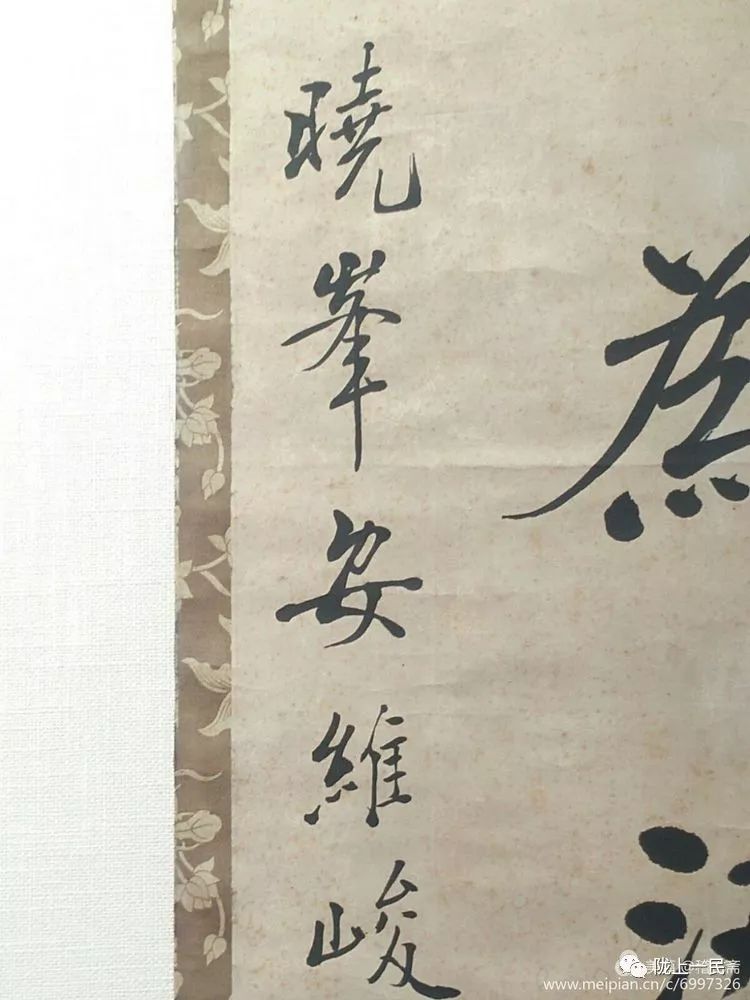 為
曉峯安維峻
陇上一民
www.meipian.cn/c/6997326